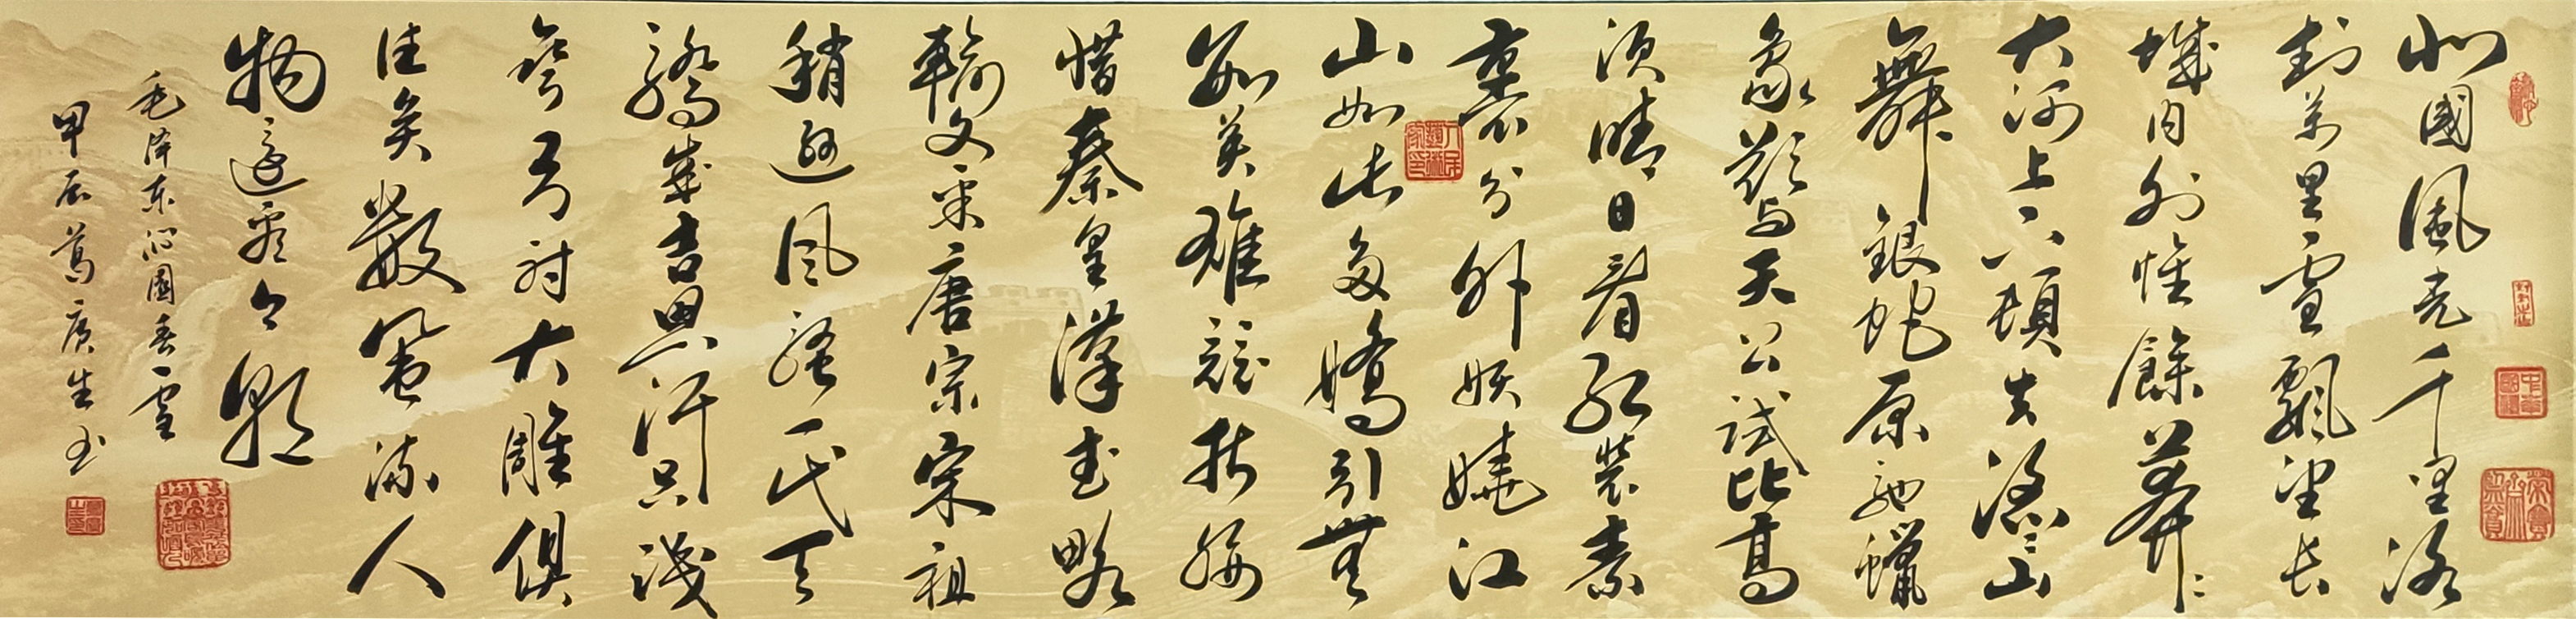 北國風光千里冰
封萬里雪飄望長
城内外惟餘莽〻
大河上下頓失滔〻山
舞銀蛇原馳蠟
象欲与天公試比高
須晴日看红裝素
裹分外妖嬈江
山如此多嬌引無
數英雄競折腰
惜秦皇漢武略
輸文采唐宗宋祖
稍遜风騷一代天
驕成吉思汗只識
彎弓射大雕俱
往矣數風流人
物還看今朝
毛泽东沁園春雪
甲辰葛生书